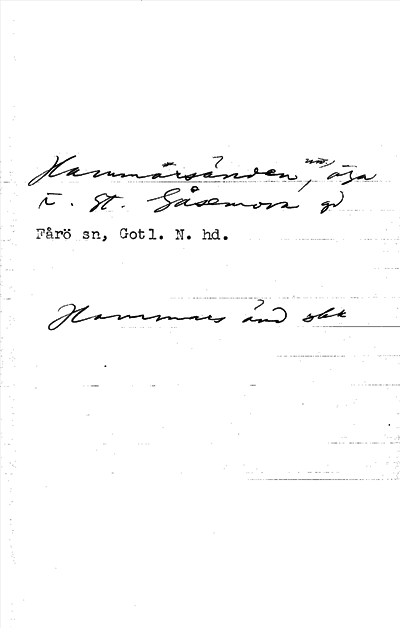 Hammarsänden, äga
i. St. Gåsemora gd
Fårö sn, Gotl. N. hd.
Hammars änd